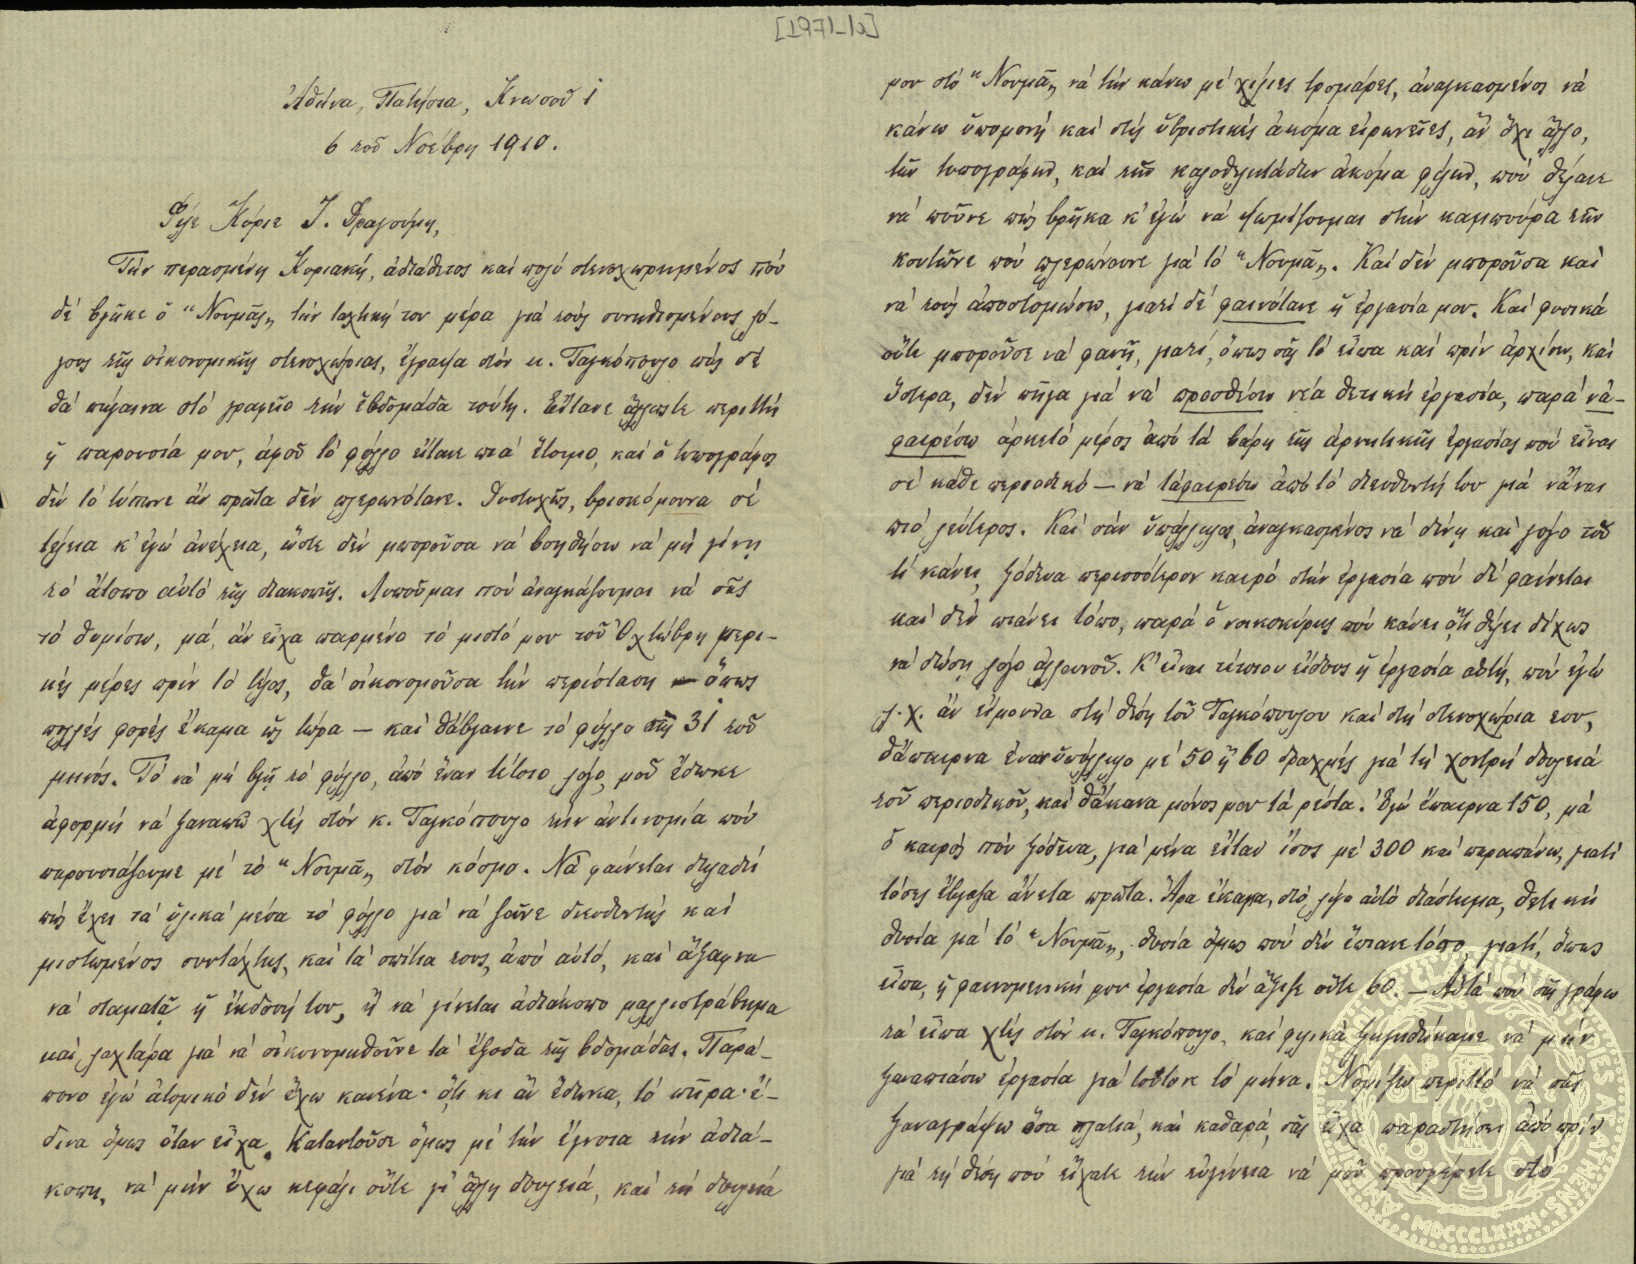 Ἀθήνα, Πατήσια, Κνωσοῦ 1
6 τοῦ Νοέβρη 1910.
Φίλε Κύριε Ἴ. Δραγούμη,
Τὴν περασμένη Κυριακή, ἀδιάθετος καὶ πολὺ στενοχωρημένος ποὺ
δὲ βγῆκε ὁ "Νουμᾶς" τὴν ταχτική του μέρα γιὰ τοὺς συνηθισμένους λό-
γους τῆς οἰκονομικῆς στενοχώριας, ἔγραψα στὸν κ. Ταγκόπουλο πὼς δὲ
θὰ πήγαινα στὸ γραφεῖο τὴν ἑβδομάδα τούτη. Εἴτανε ἄλλωστε περιττὴ
ἡ παρουσία μου, ἀφοῦ τὸ φύλλο εἴτανε πιὰ ἕτοιμο, καὶ ὁ τυπογράφος
δὲν τὸ τύπωνε ἂν πρῶτα δὲν πλερωνότανε. Δυστυχῶς, βρισκόμουνα σὲ
τέλεια κ' ἐγὼ ἀνέχεια, ὥστε δὲν μποροῦσα νὰ βοηθήσω νὰ μὴ γίνῃ
τὸ ἄτοπο αὐτὸ τῆς διακοπῆς. Λυποῦμαι ποὺ ἀναγκάζουμαι νὰ σᾶς
τὸ θυμίσω, μά, ἂν εἶχα παρμένο τὸ μιστό μου τοῦ Ὀχτώβρη μερι-
κὲς μέρες πρὶν τὸ τέλος, θὰ οἰκονομοῦσα τὴν περίσταση — ὅπως
πολλὲς φορὲς ἔκαμα ὣς τώρα — καὶ θἄβγαινε τὸ φύλλο τῆς 31 τοῦ
μηνός. Τὸ νὰ μὴ βγῇ τὸ φύλλο, ἀπὸ ἕναν τέτοιο λόγο, μοῦ ἔδωκε
ἀφορμὴ νὰ ξαναπῶ χτὲς στὸν κ. Ταγκόπουλο τὴν ἀντινομία ποὺ
παρουσιάζουμε μὲ τὸ "Νουμᾶ" στὸν κόσμο. Νὰ φαίνεται δηλαδὴ
πὼς ἔχει τὰ ὑλικὰ μέσα τὸ φύλλο γιὰ νὰ ζοῦνε διευθυντὴς καὶ
μιστωμένος συντάχτης, καὶ τὰ σπίτια τους, ἀπὸ αὐτό, καὶ ἄξαφνα
νὰ σταματᾷ ἡ ἔκδοσή του, ἢ νὰ γίνεται ἀδιάκοπο μαλλιοτράβηγμα
καὶ λαχτάρα γιὰ νὰ οἰκονομηθοῦνε τὰ ἔξοδα τῆς βδομάδας. Παρά-
πονο ἐγὼ ἀτομικὸ δὲν ἔχω κανένα· ὅ,τι κι ἂν ἔδωκα, τὸ πῆρα· ἔ-
δινα ὅμως ὅταν εἶχα. Καταντοῦσε ὅμως μὲ τὴν ἔγνοια τὴν ἀδιά-
κοπη, νὰ μὴν ἔχω κεφάλι οὔτε γι' ἄλλη δουλειά, καὶ τὴ δουλειά
μου στὸ "Νουμᾶ" νὰ τὴν κάνω μὲ χίλιες τρομάρες, ἀναγκασμένος νὰ
κάνω ὑπομονὴ καὶ στὶς ὑβριστικὲς ἀκόμα εἰρωνεῖες, ἂν ὄχι ἄλλο,
τῶν τυπογράφων, καὶ τῶν καλοθελητάδων ἀκόμα φίλων, ποὺ θέλανε
νὰ ποῦνε πὼς βρῆκα κ' ἐγὼ νὰ ψωμίζουμαι στὴν καμπούρα τῶν
κουτῶνε ποὺ πλερώνουνε γιὰ τὸ "Νουμᾶ". Καὶ δὲν μποροῦσα καὶ
νὰ τοὺς ἀποστομώσω, γιατὶ δὲ φαινότανε ἡ ἐργασία μου. Καὶ φυσικὰ
οὔτε μποροῦσε νὰ φανῇ, γιατί, ὅπως σᾶς τὸ εἶπα καὶ πρὶν ἀρχίσω, καὶ
ὕστερα, δὲν πῆγα γιὰ νὰ προσθέσω νέα θετικὴ ἐργασία, παρὰ νὰ-
φαιρέσω ἀρκετὸ μέρος ἀπὸ τὰ βάρη τῆς ἀρνητικῆς ἐργασίας ποὺ εἶναι
σὲ κάθε περιοδικὸ — νὰ τἀφαιρέσω ἀπὸ τὸ διευθυντή του γιὰ νἆναι
πιὸ λεύτερος. Καὶ σὰν ὑπάλληλος, ἀναγκασμένος νὰ δίνῃ καὶ λόγο τοῦ
τί κάνει, ξόδευα περισσότερον καιρὸ στὴν ἐργασία ποὺ δὲ φαίνεται
καὶ δὲν πιάνει τόπο, παρὰ ὁ νοικοκύρης ποὺ κάνει ὅ,τι θέλει δίχως
νὰ δώσῃ λόγο ἀλλουνοῦ. Κ' εἶναι τέτοιου εἴδους ἡ ἐργασία αὐτή, ποὺ ἐγὼ
λ.χ. ἂν εἴμουνα στὴ θέση τοῦ Ταγκόπουλου καὶ στὴ στενοχώρια του,
θἄπαιρνα ἕναν ὑπάλληλο μὲ 50 ἢ 60 δραχμὲς γιὰ τὴ χοντρὴ δουλειὰ
τοῦ περιοδικοῦ, καὶ θἄκανα μόνος μου τὰ ρέστα. Ἐγὼ ἔπαιρνα 150, μὰ
ὁ καιρὸς ποὺ ξόδευα, γιὰ μένα εἴταν ἴσος μὲ 300 καὶ παραπάνω, γιατὶ
τόσες ἔβγαζα ἄνετα πρῶτα. Ἄρα ἔκαμα, στὸ λίγο αὐτὸ διάστημα, θετικὴ
θυσία γιὰ τὸ "Νουμᾶ", θυσία ὅμως ποὺ δὲν ἔπιανε τόπο, γιατί, ὅπως
εἶπα, ἡ φαινομενική μου ἐργασία δὲν ἄξιζε οὔτε 60. — Αὐτὰ ποὺ σᾶς γράφω
τὰ εἶπα χτὲς στὸν κ. Ταγκόπουλο, καὶ φιλικὰ ξηγηθήκαμε νὰ μὴν
ξαναπιάσω ἐργασία γιὰ τοῦτον τὸ μήνα. Νομίζω περιττὸ νὰ σᾶς
ξαναγράψω ὅσα πλατιὰ, καὶ καθαρά, σᾶς εἶχα παραστήσει ἀπὸ πρὶν
γιὰ τὴ θέση ποὺ εἴχατε τὴν εὐγένεια νὰ μοῦ προσφέρετε στὸ